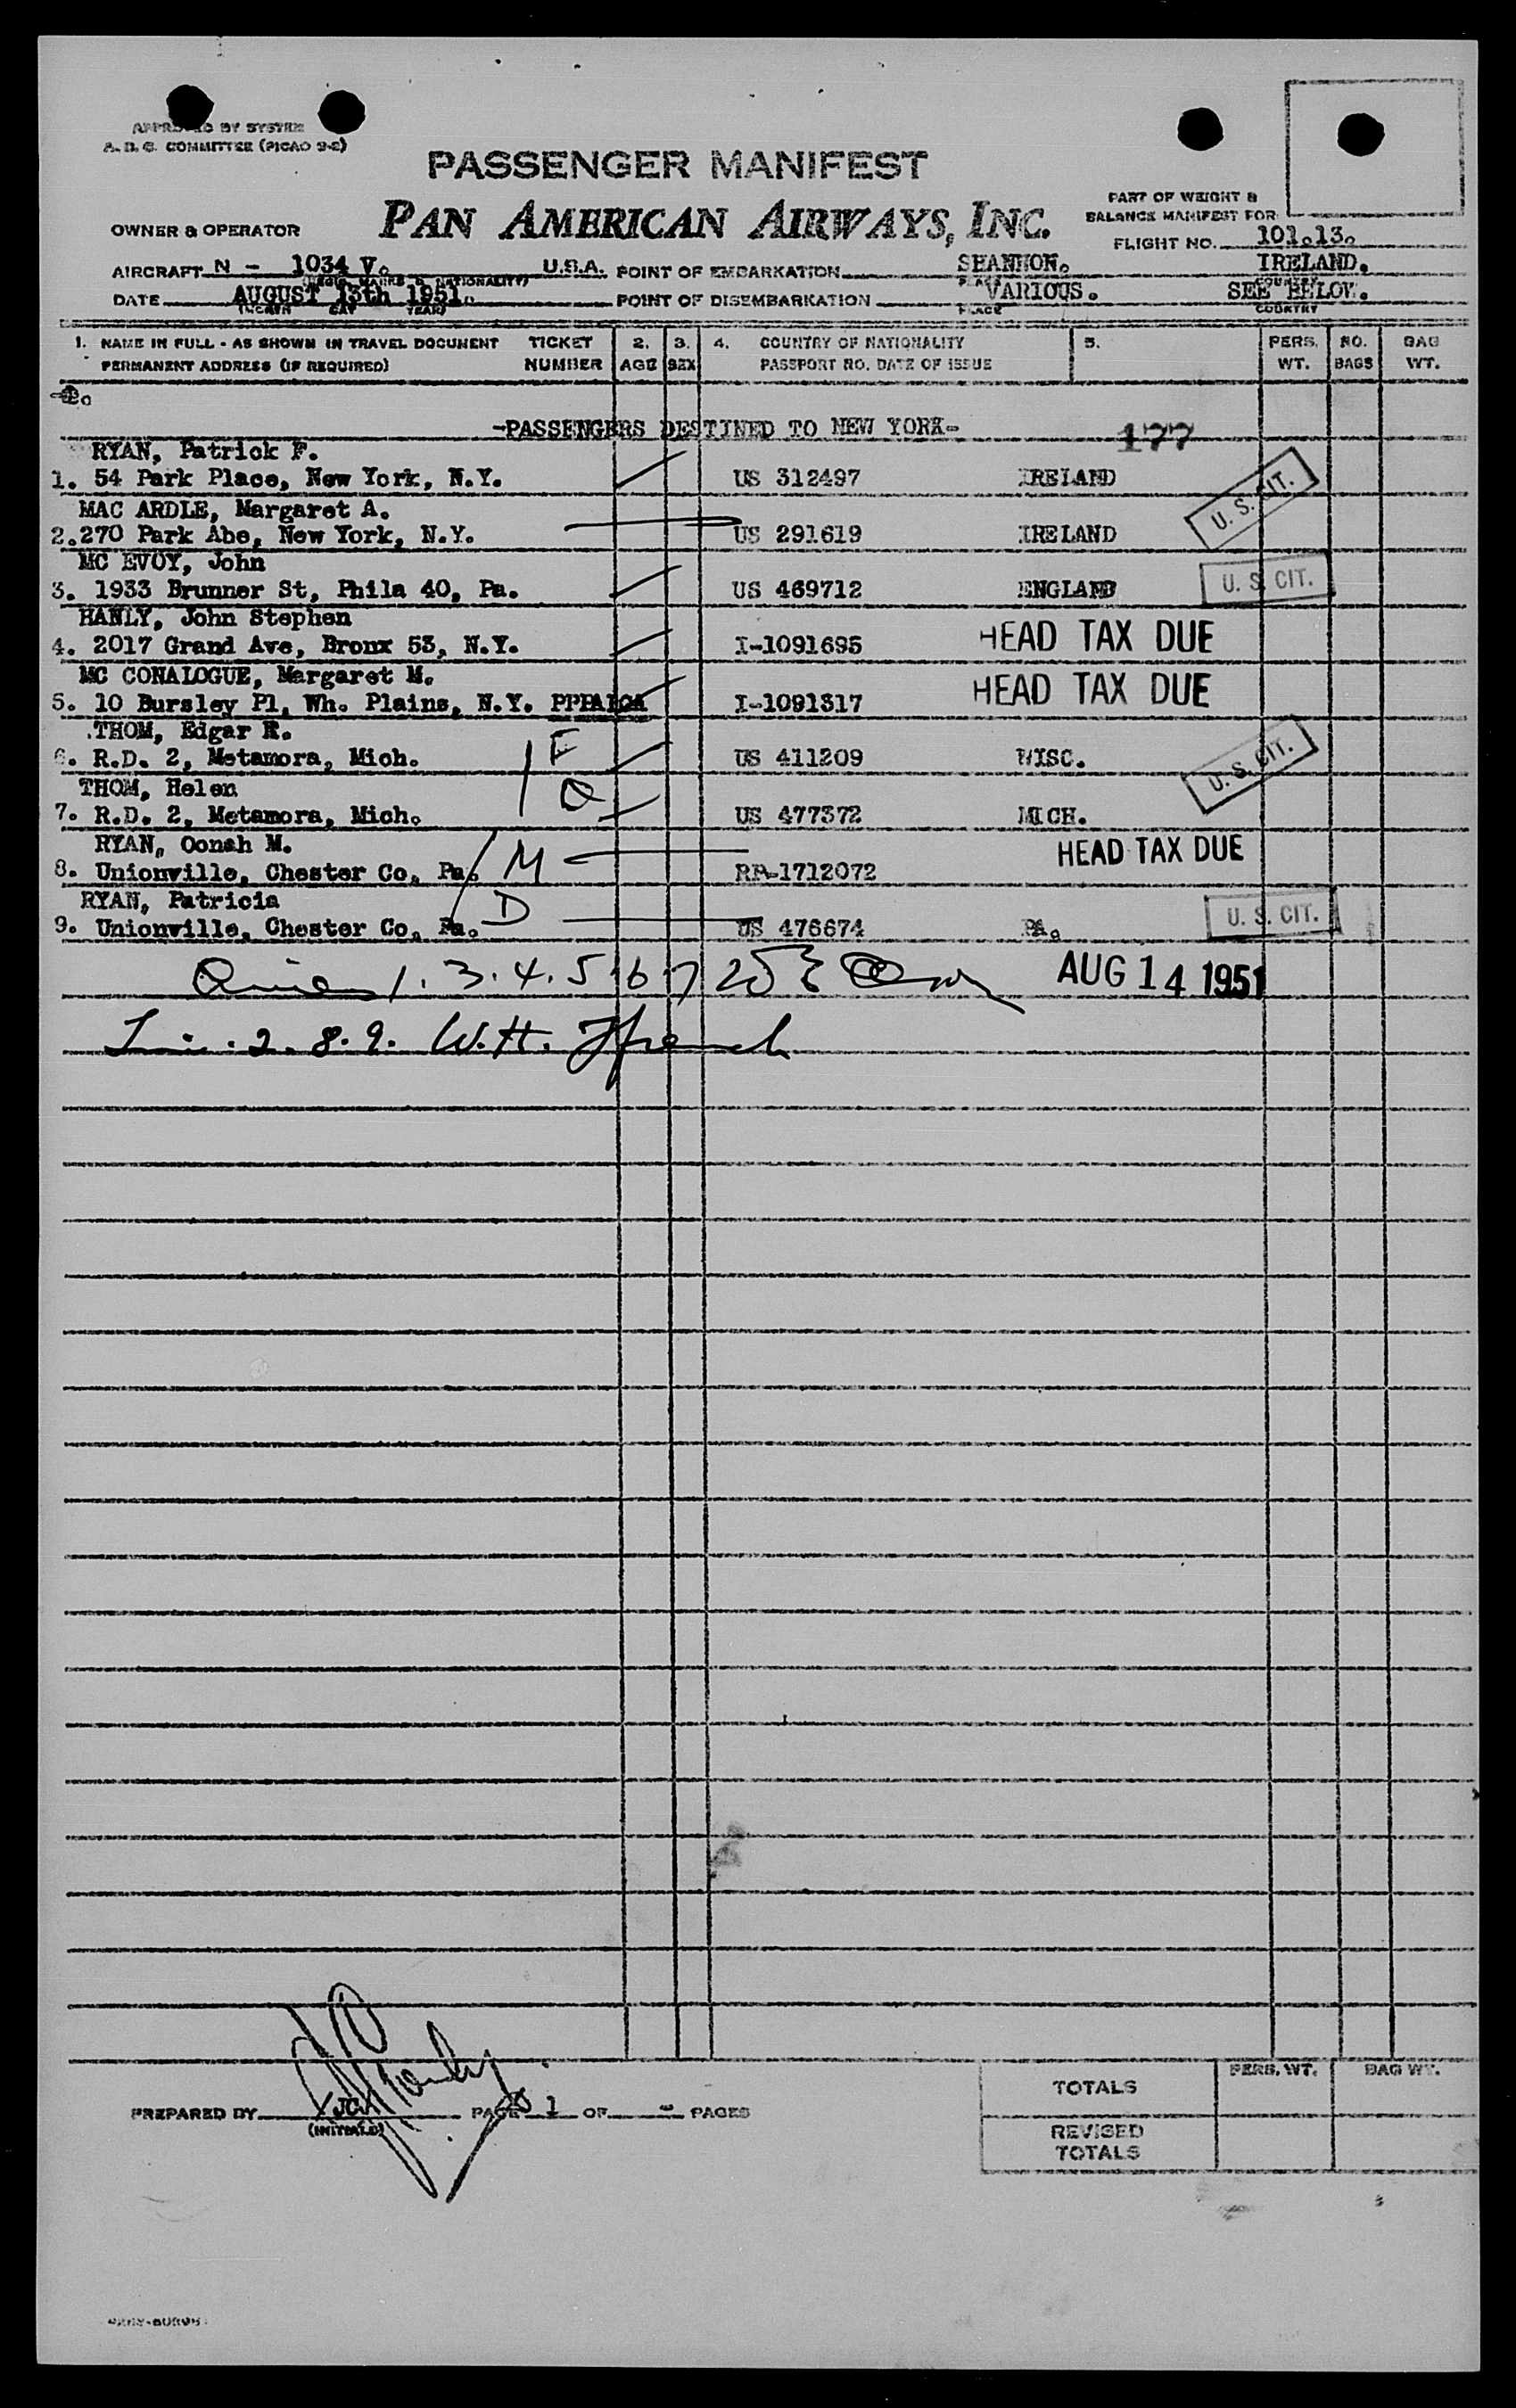 APPROVED BY SYSTEM
A. B. C. COMMITTEE (PICAO 9-2)
PASSENGER MANIFEST
PART OF WEIGHT &
BALANCE MANIFEST FOR
OWNER & OPERATOR PAN AMERICAN AIRWAYS, INC.
FLIGHT NO. 101.13.
AIRCRAFT N - 1034 V. U.S.A. POINT OF EMBARKATION SHANNON. IRELAND.
DATE AUGUST 13th 1951. POINT OF DISEMBARKATION VARIOUS. SEE BELOW.
(MONTH DAY YEAR) PLACE COUNTRY
1. NAME IN FULL - AS SHOWN IN TRAVEL DOCUMENT TICKET 2. 3. 4. COUNTRY OF NATIONALITY 5. PERS. NO. BAG
PERMANENT ADDRESS (IF REQUIRED) NUMBER AGE SEX PASSPORT NO. DATE OF ISSUE WT. BAGS WT.
-PASSENGERS DESTINED TO NEW YORK- 177
RYAN, Patrick F.
1. 54 Park Place, New York, N.Y. US 312497 IRELAND U. S. CIT.
MAC ARDLE, Margaret A.
2. 270 Park Abe, New York, N.Y. US 291619 IRELAND
MC EVOY, John
3. 1933 Brunner St, Phila 40, Pa. US 469712 ENGLAND U. S. CIT.
HANLY, John Stephen
4. 2017 Grand Ave, Bronx 53, N.Y. I-1091695 HEAD TAX DUE
MC CONALOGUE, Margaret M.
5. 10 Bursley Pl, Wh. Plains, N.Y. I-1091317 HEAD TAX DUE
THOM, Edgar R. F
6. R.D. 2, Metamora, Mich. US 411209 WISC. U. S. CIT.
THOM, Helen
7. R.D. 2, Metamora, Mich. US 477372 MICH.
RYAN, Oonah M. HEAD TAX DUE
8. Unionville, Chester Co, Pa. M RP-1712072
RYAN, Patricia
9. Unionville, Chester Co, Pa. D US 476674 PA. U. S. CIT.
1. 3. 4. 5 6 7 AUG 14 1951
2. 8. 9. W.H. Ffrench
TOTALS PERS. WT. BAG WT.
PREPARED BY JC. PAGE 1 OF - PAGES
(INITIALS)
REVISED
TOTALS